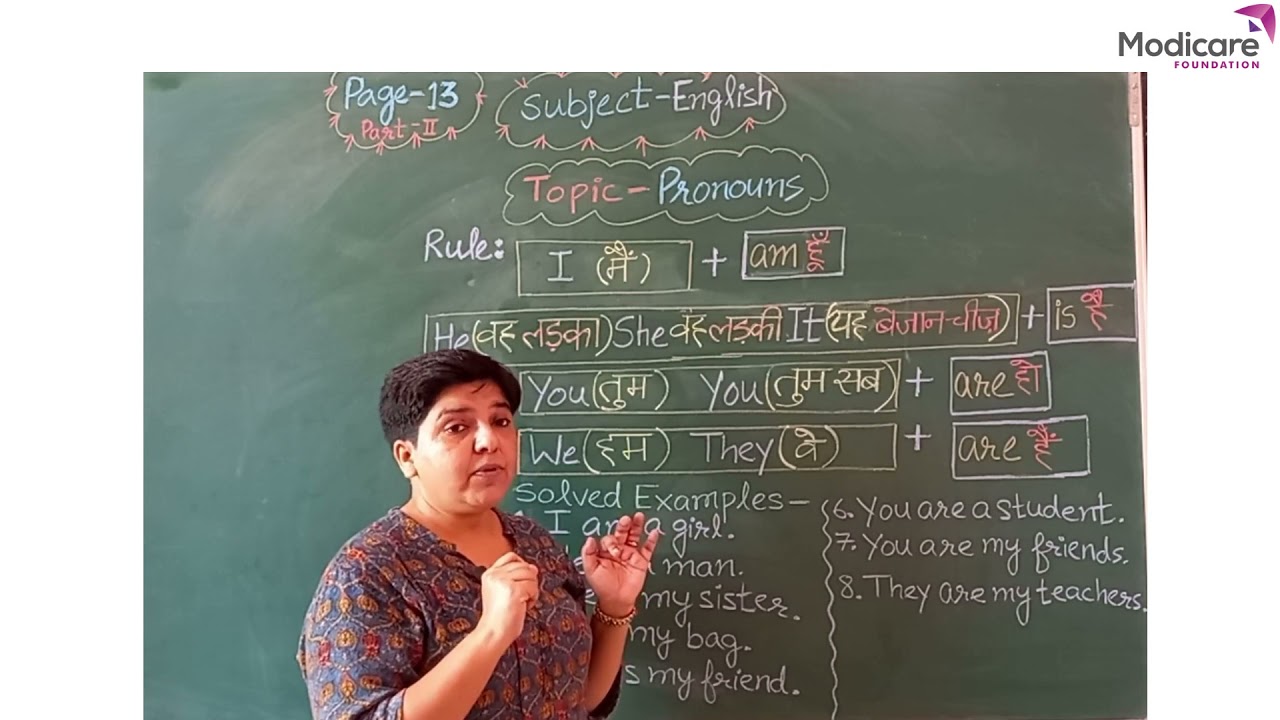 Modicare
FOUNDATION
Page-13
Part-II
Subject-English
Topic-Pronouns
Rule: I (मैं) + am हूँ
He (वह लड़का) She वह लड़की It (यह बेजान-चीज़) + is है
You (तुम) You (तुम सब) + are हो
We (हम) They (वे) + are हैं
Solved Examples-
I am a girl.
man.
my sister.
my bag.
my friend.
6. You are a student.
7. You are my friends.
8. They are my teachers.